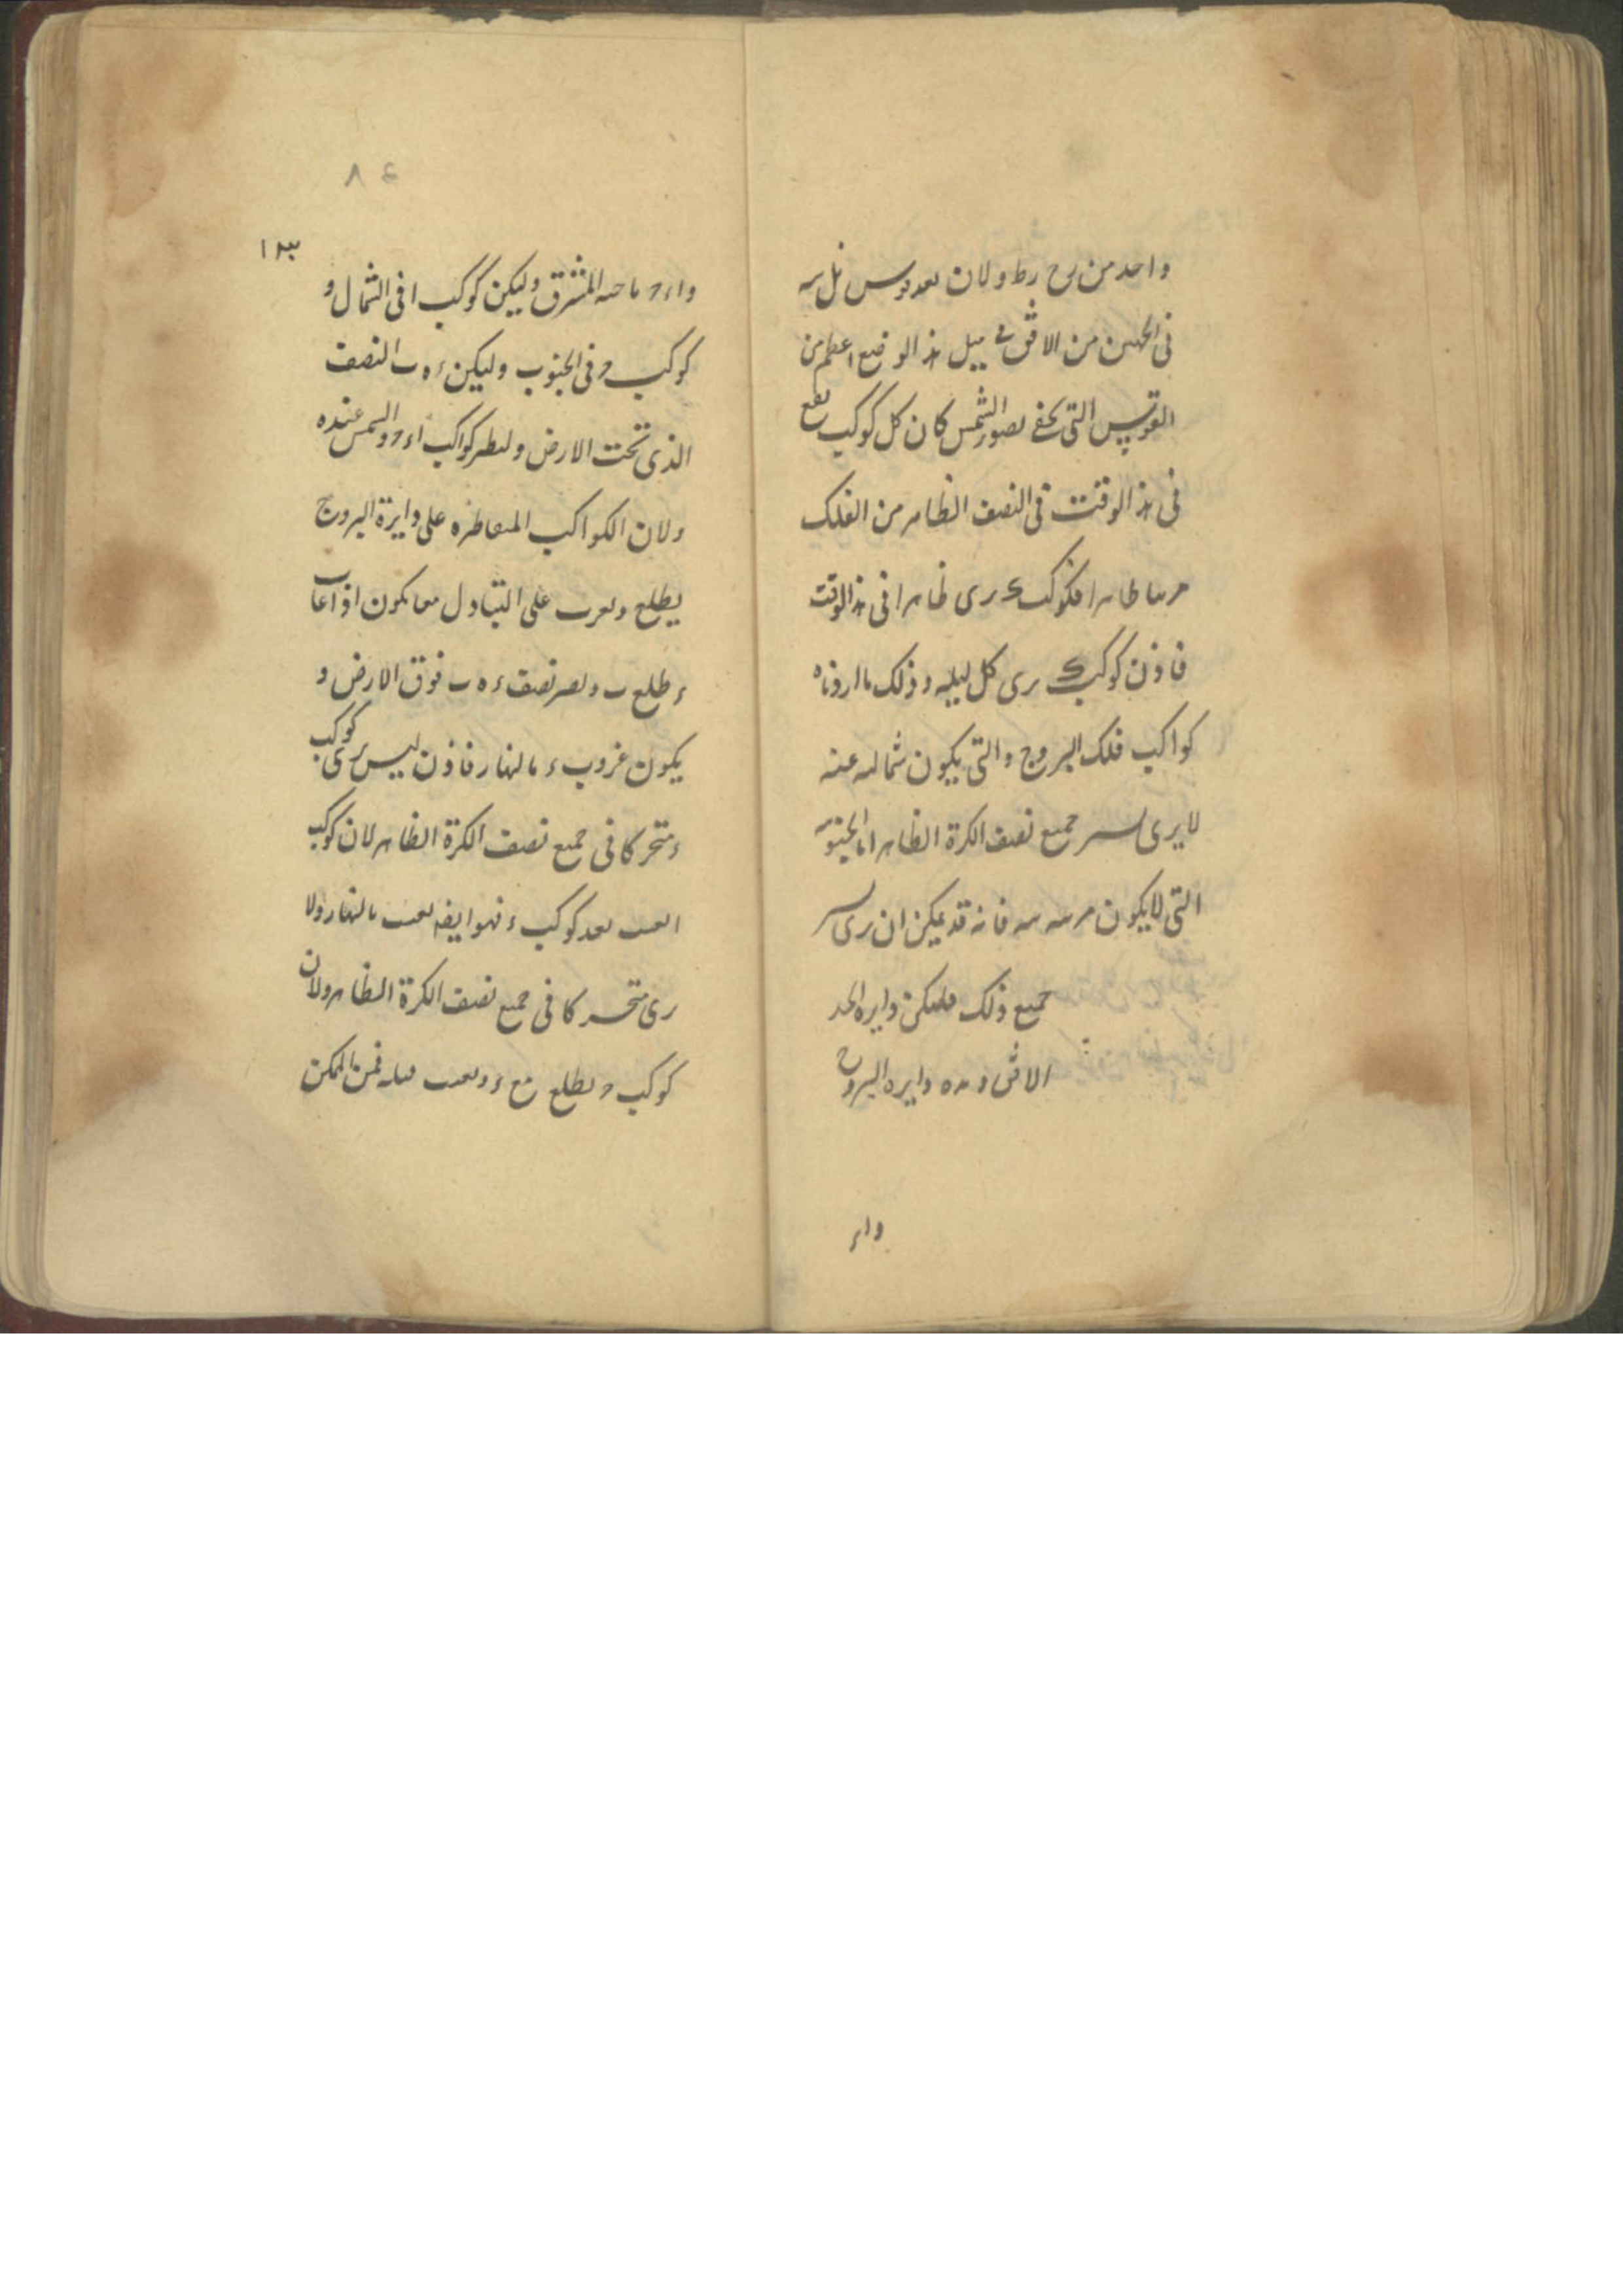 واحد من رح رط ولان بعد قوس نل سه
فى الجهتين من الافق فى مثل هذا الوضع اعظم من
القوس التى تخفى بضوء الشمس كان كل كوكب يقع
فى هذا الوقت فى النصف الظاهر من الفلك
مرىيا ظاهرا فكوكب ك يرى ظاهرا فى هذا الوقت
فاذن كوكب ك يرى كل ليله وذلك ما اردناه
كواكب فلك البروج والتى يكون شماليه عنه
لا يرى تسير جميع نصف الكرة الظاهر اما الجنوبيه
التى لا يكون فانه قد يمكن ان يرى تسير
جميع ذلك فليكن دايره احد
الافق و دايره البروج
واء
٨٤
١٢٣
واء ح ناحيه المشرق وليكن كوكب ا فى الشمال و
كوكب ح فى الجنوب وليكن ء ه ب النصف
الذى تحت الارض ولنطر كواكب اء ح والشمس عنده
ولان الكواكب المتقاطره على دايرة البروج
يطلع ويغرب على التبادل معا يكون اذا غاب
ء طلع ب ويصير نصف ء ه ب فوق الارض و
يكون غروب ء بالنهار فاذن ليس يرى كوكب
ء متحركا فى جميع نصف الكرة الظاهر لان كوكب
ا يغيب بعد كوكب ء فهو ايضا يغيب بالنهار ولا
يرى متحركا فى جميع نصف الكرة الظاهر ولان
كوكب ح يطلع مع ء ويغيب قبله فمن الممكن